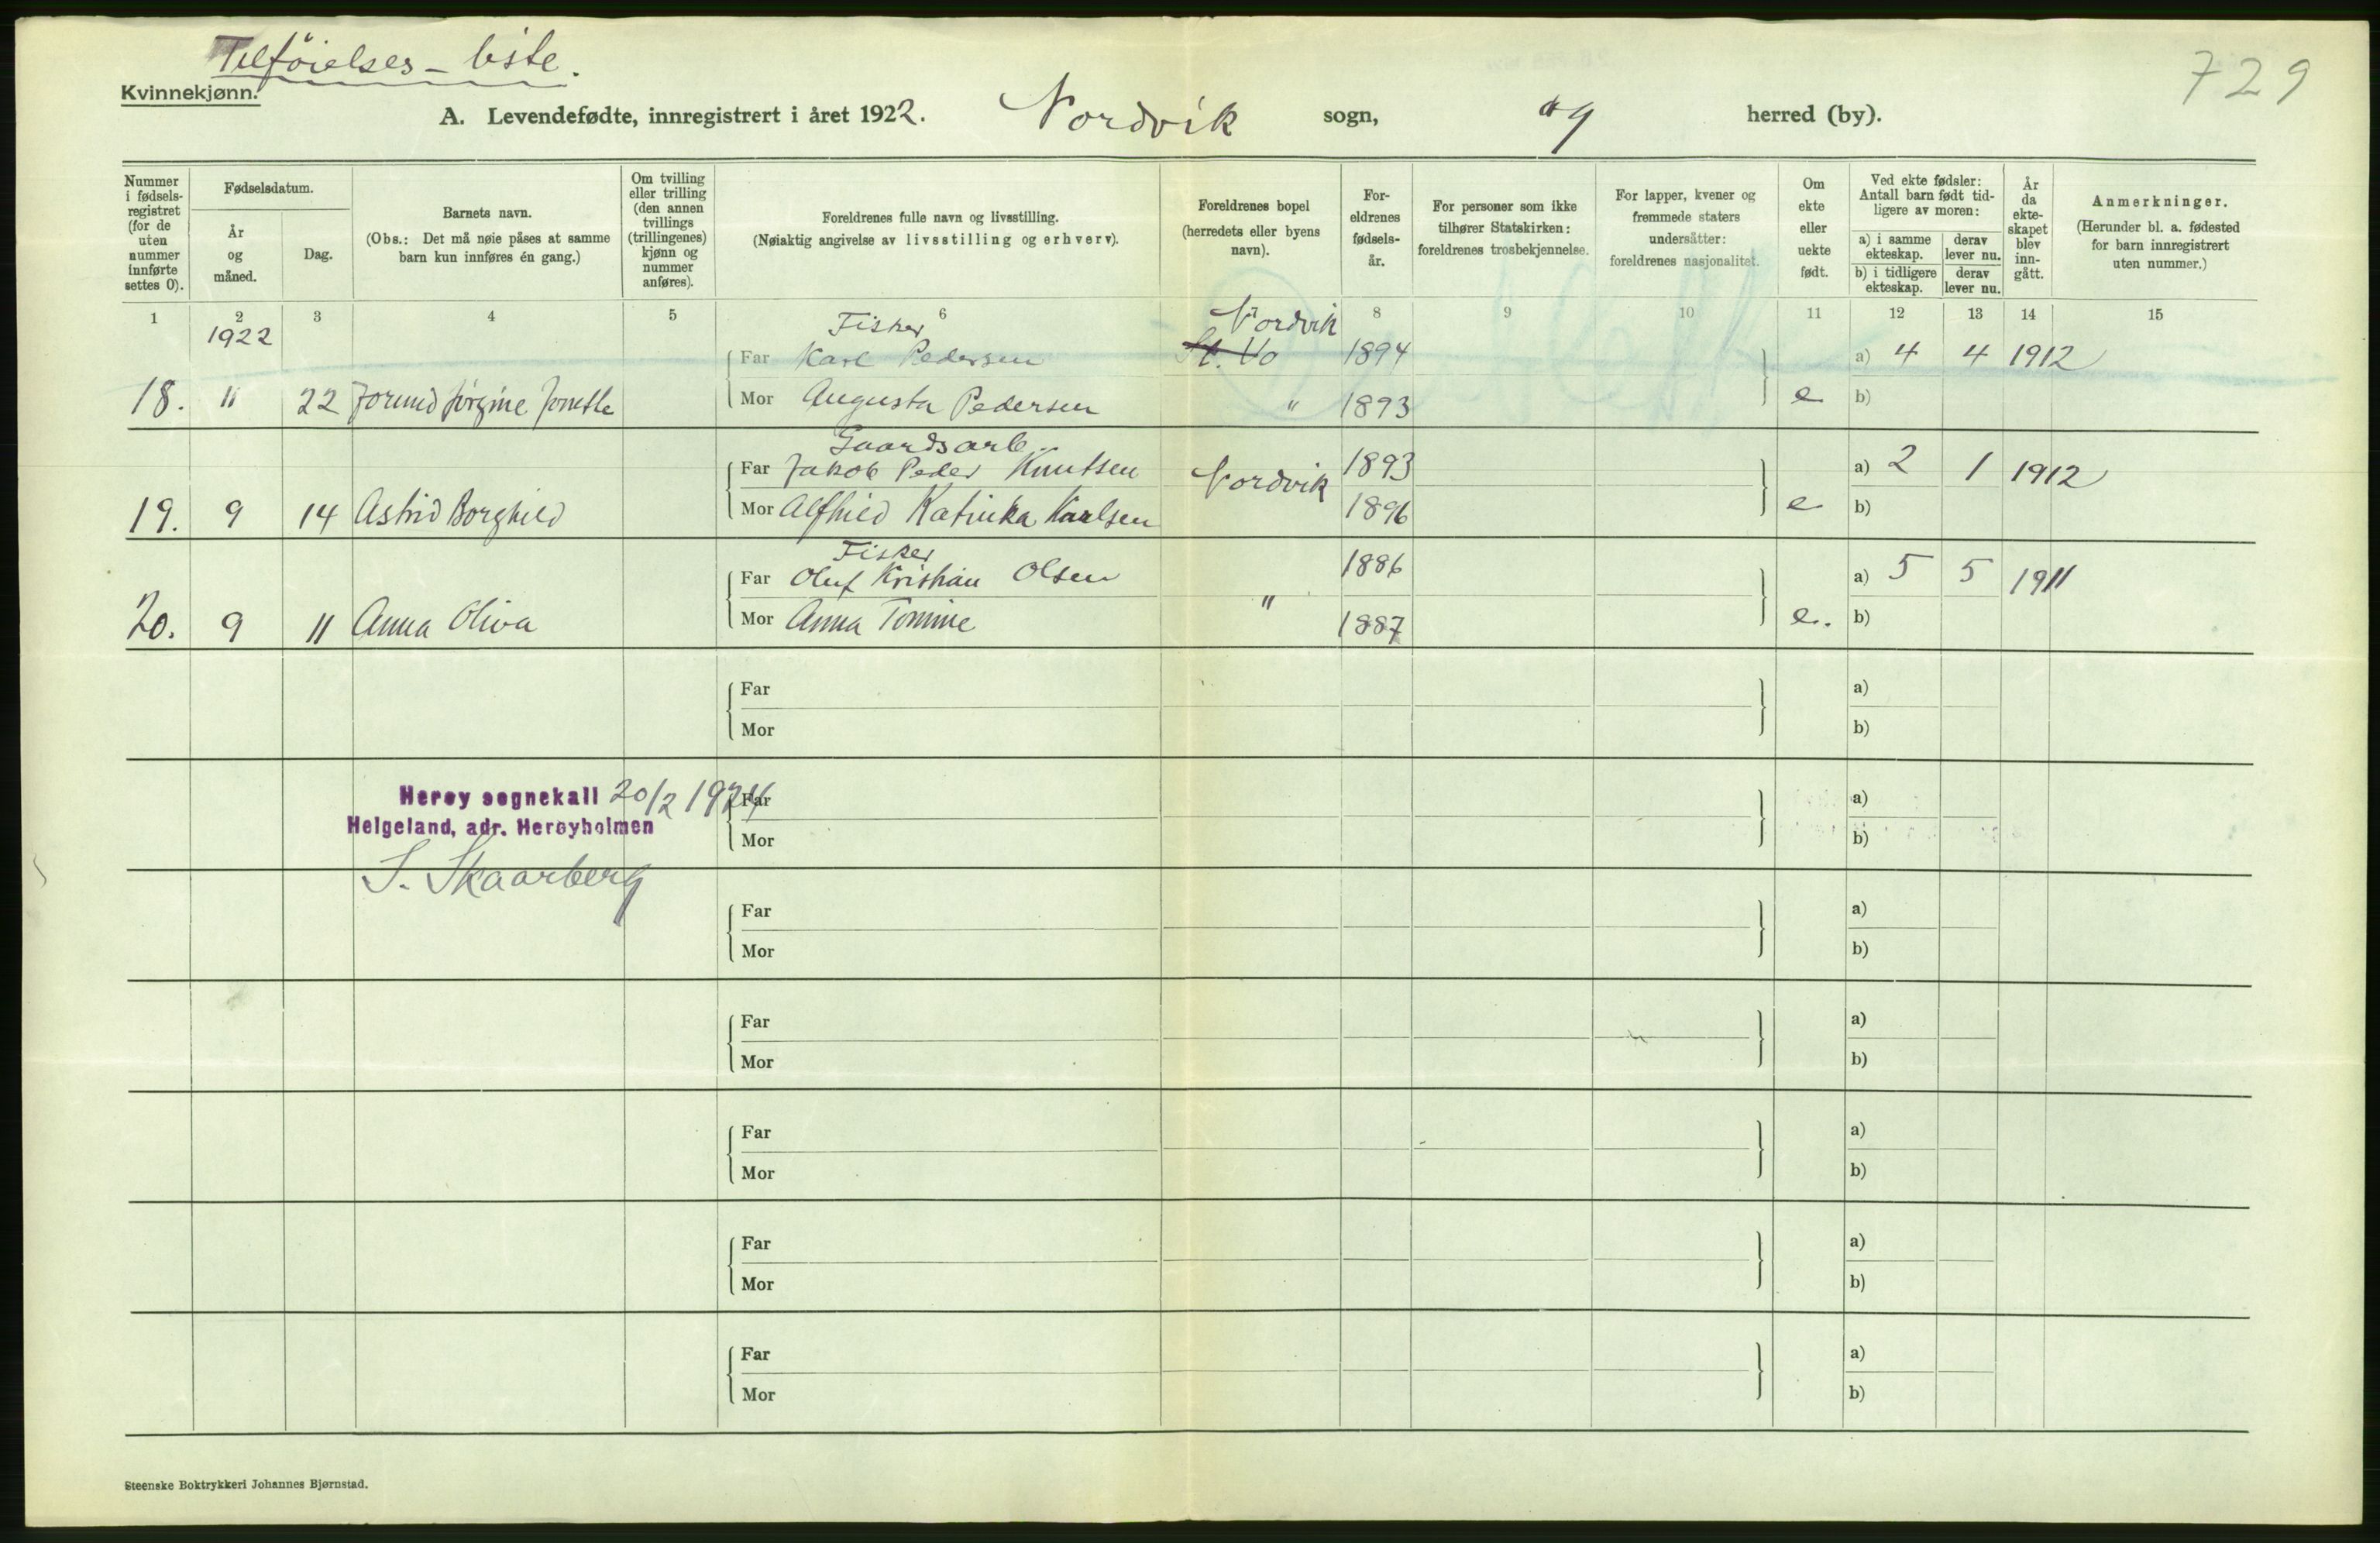 Tilföielses - liste.
729
Kvinnekjønn.
A. Levendefødte, innregistrert i året 1922. Nordvik sogn, og herred (by).
Nummer i fødsels-registret (for de uten nummer innførte settes 0).
Fødselsdatum.
År og måned.
Dag.
Barnets navn.
(Obs.: Det må nøie påses at samme barn kun innføres én gang.)
Om tvilling eller trilling (den annen tvillings (trillingenes) kjønn og nummer anføres).
Foreldrenes fulle navn og livsstilling.
(Nøiaktig angivelse av livsstilling og erhverv).
Foreldrenes bopel (herredets eller byens navn).
For-eldrenes fødsels-år.
For personer som ikke tilhører Statskirken: foreldrenes trosbekjennelse.
For lapper, kvener og fremmede staters undersåtter: foreldrenes nasjonalitet.
Om ekte eller uekte født.
Ved ekte fødsler: Antall barn født tid-ligere av moren:
a) i samme ekteskap.
derav lever nu.
b) i tidligere ekteskap.
derav lever nu.
År da ekte-skapet blev inn-gått.
Anmerkninger.
(Herunder bl. a. fødested for barn innregistrert uten nummer.)
1 2 3 4 5 6 8 9 10 11 12 13 14 15
1922 Fisker Nordvik
Far Karl Pedersen 1894 a) 4 4 1912
18. 11 22 Jorund Jørgine Jonette Mor Augusta Pedersen " 1893 e b)
Gaardsarb.
Far Jakob Peder Knutsen Nordvik 1893 a) 2 1 1912
19. 9 14 Astrid Borghild Mor Alfhild Katinka Karlsen 1896 e b)
Fisker
Far Oluf Kristian Olsen 1886 a) 5 5 1911
20. 9 11 Anna Oliva Mor Anna Tomine " 1887 e. b)
Far a)
Mor b)
Herøy sognekall 20/2 1924 Far a)
Helgeland, adr. Herøyholmen Mor b)
S. Skaarberg
Far a)
Mor b)
Far a)
Mor b)
Far a)
Mor b)
Far a)
Mor b)
Far a)
Mor b)
Steenske Boktrykkeri Johannes Bjørnstad.